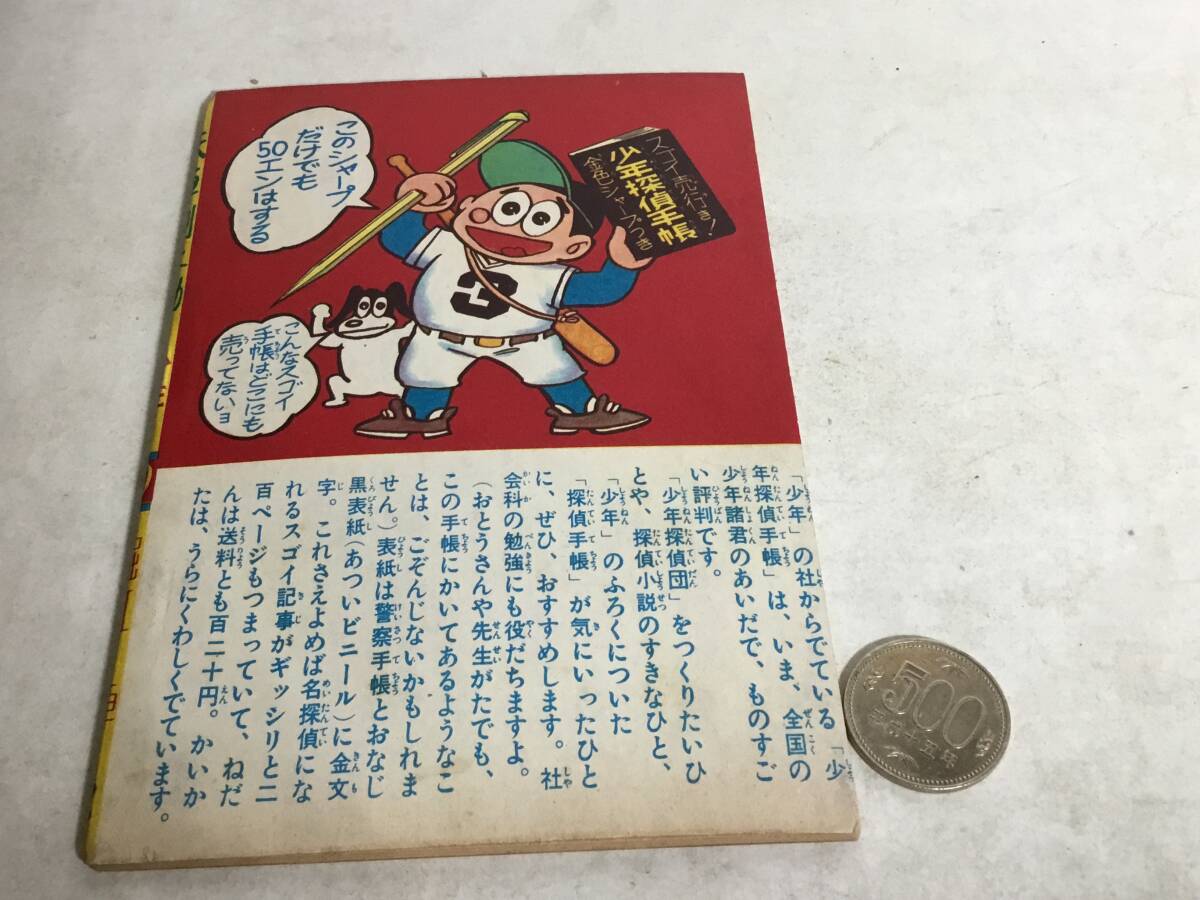 このシャープ
だけでも
50エンはする
スゴイ売行き!
少年探偵手帳
金色シャープつき
こんなスゴイ
手帳はどこにも
売ってないヨ
「少年」の社からでている「少
年探偵手帳」は、いま、全国の
少年諸君のあいだで、ものすご
い評判です。
「少年探偵団」をつくりたいひ
とや、探偵小説のすきなひと、
「少年」のふろくについた
「探偵手帳」が気にいったひと
に、ぜひ、おすすめします。社
会科の勉強にも役だちますよ。
(おとうさんや先生がたでも、
この手帳にかいてあるようなこ
とは、ごぞんじないかもしれま
せん。)表紙は警察手帳とおなじ
黒表紙(あついビニール)に金文
字。これさえよめば名探偵にな
れるスゴイ記事がギッシリと二
百ページもつまっていて、ねだ
んは送料とも百二十円。かいか
たは、うらにくわしくでています。
500